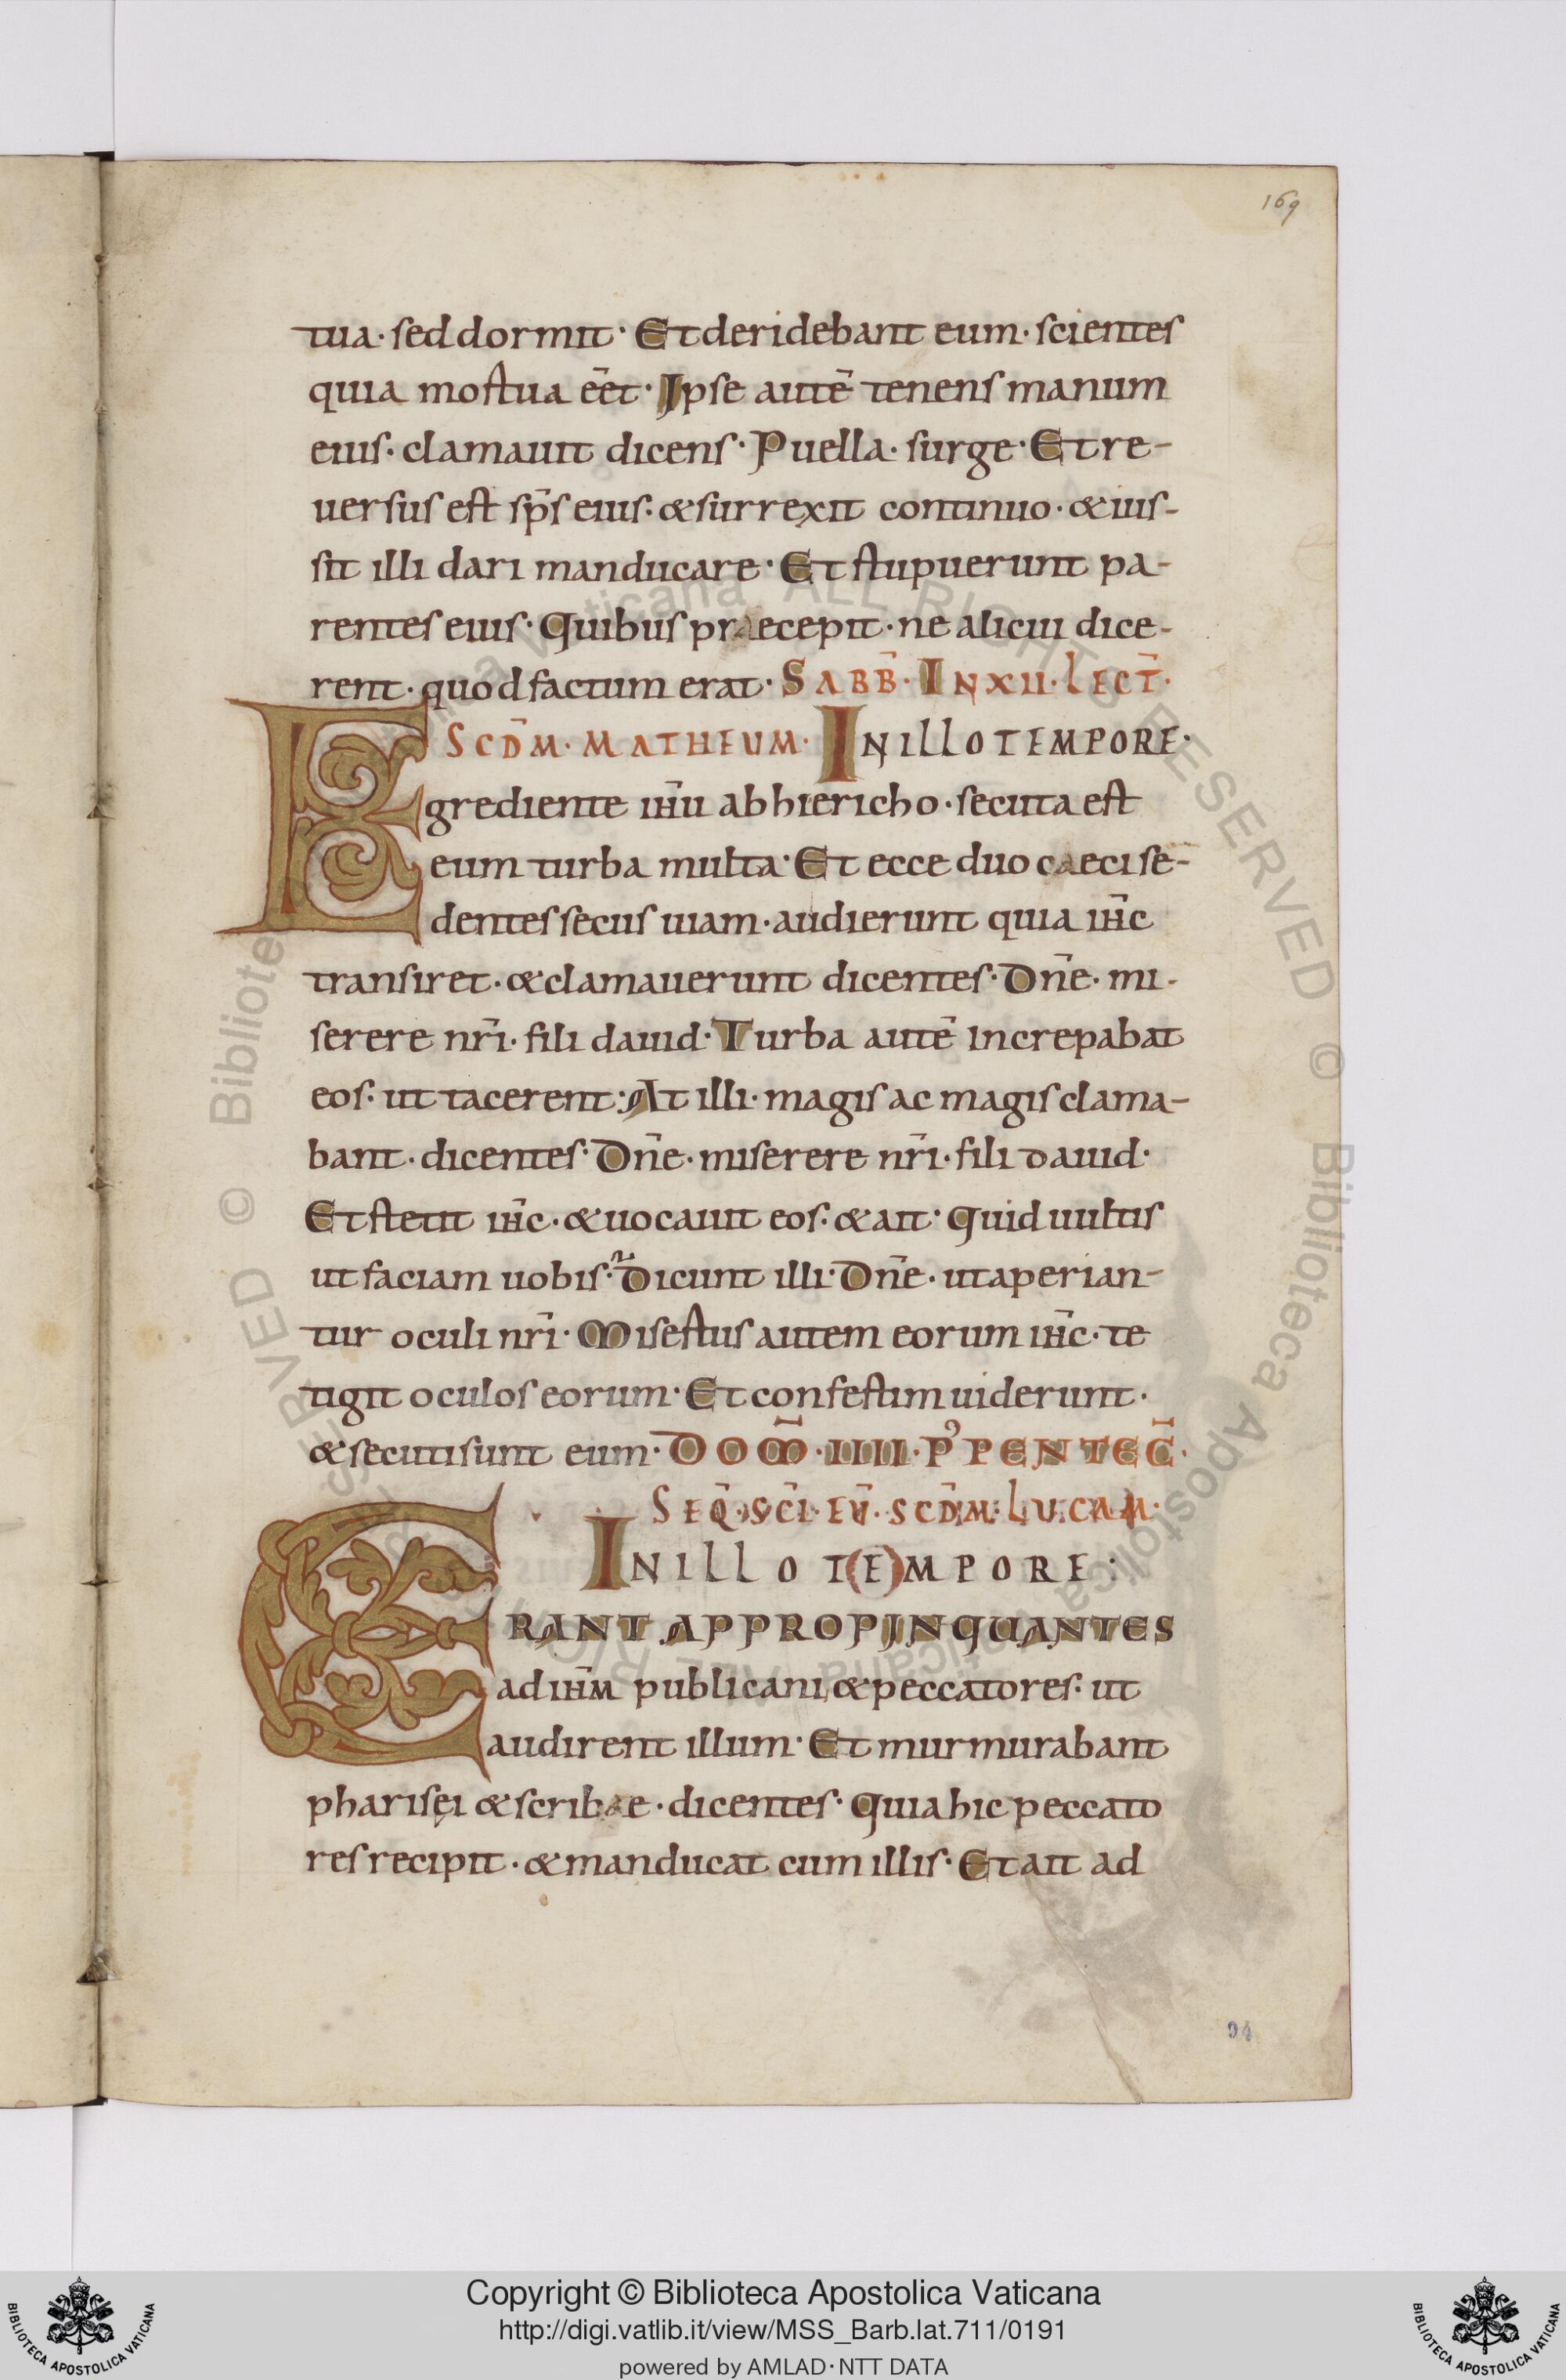 169
tua· sed dormit· Et deridebant eum· scientes
quia mortua eēt· Ipse autē tenens manum
eius· clamauit dicens· Puella· surge· Et re-
uersus est sp̄s eius· & surrexit continuo· & ius-
sit illi dari manducare· Et stupuerunt pa-
rentes eius· Quibus praecepit· ne alicui dice-
rent· quod factum erat· SABB̄· IN XII· LECT̄·
SCD̄M· MATHEUM· IN ILLO TEMPORE·
Egrediente ih̄u ab hiericho· secuta est
eum turba multa· Et ecce duo caeci se-
dentes secus uiam· audierunt quia ih̄c
transiret· & clamauerunt dicentes· Dn̄e· mi-
serere nr̄i· fili dauid· Turba autē increpabat
eos· ut tacerent: At illi· magis ac magis clama-
bant· dicentes· Dn̄e· miserere nr̄i· fili dauid·
Et stetit ih̄c· & uocauit eos· & ait· Quid uultis
ut faciam uobis· Dicunt illi· Dn̄e· ut aperian-
tur oculi nr̄i· Misertus autem eorum ih̄c· te
tigit oculos eorum· Et confestim uiderunt·
& secuti sunt eum· DOM̄· IIII· P' PENTEC̄·
SEQ̄· SC̄I· EŪ· SCD̄M· LUCAM·
IN ILLO T(E)MPORE:
ERANT APPROPINQUANTES
ad ih̄m publicani & peccatores· ut
audirent illum· Et murmurabant
pharisęi & scribae· dicentes· Quia hic peccato
res recipit· & manducat cum illis· Et ait ad
94
Copyright © Biblioteca Apostolica Vaticana
http://digi.vatlib.it/view/MSS_Barb.lat.711/0191
powered by AMLAD·NTT DATA
BIBLIOTECA APOSTOLICA VATICANA
BIBLIOTECA APOSTOLICA VATICANA